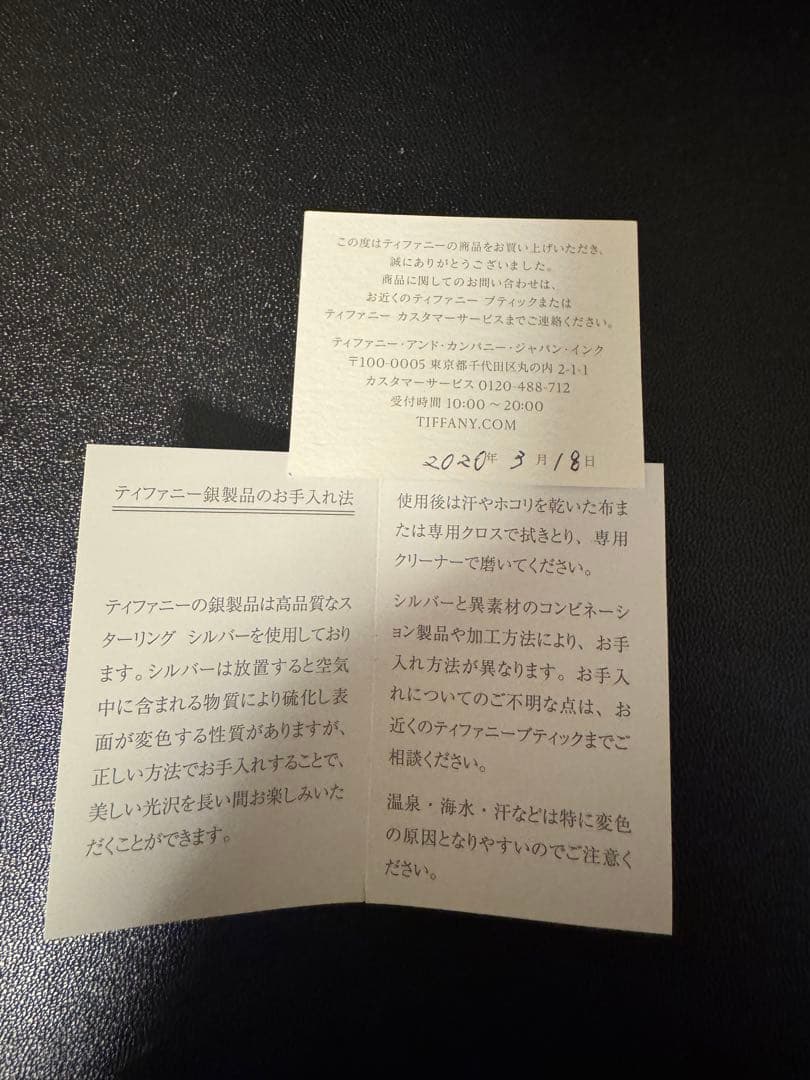 この度はティファニーの商品をお買い上げいただき、
誠にありがとうございました。
商品に関してのお問い合わせは、
お近くのティファニー ブティックまたは
ティファニー カスタマーサービスまでご連絡ください。
ティファニー・アンド・カンパニー・ジャパン・インク
〒100-0005 東京都千代田区丸の内 2-1-1
カスタマーサービス 0120-488-712
受付時間 10:00 ～ 20:00
TIFFANY.COM
2020年 3月18日
ティファニー銀製品のお手入れ法
ティファニーの銀製品は高品質なス
ターリング シルバーを使用しており
ます。シルバーは放置すると空気
中に含まれる物質により硫化し表
面が変色する性質がありますが、
正しい方法でお手入れすることで、
美しい光沢を長い間お楽しみいた
だくことができます。
使用後は汗やホコリを乾いた布ま
たは専用クロスで拭きとり、専用
クリーナーで磨いてください。
シルバーと異素材のコンビネーシ
ョン製品や加工方法により、お手
入れ方法が異なります。お手入
れについてのご不明な点は、お
近くのティファニーブティックまでご
相談ください。
温泉・海水・汗などは特に変色
の原因となりやすいのでご注意く
ださい。